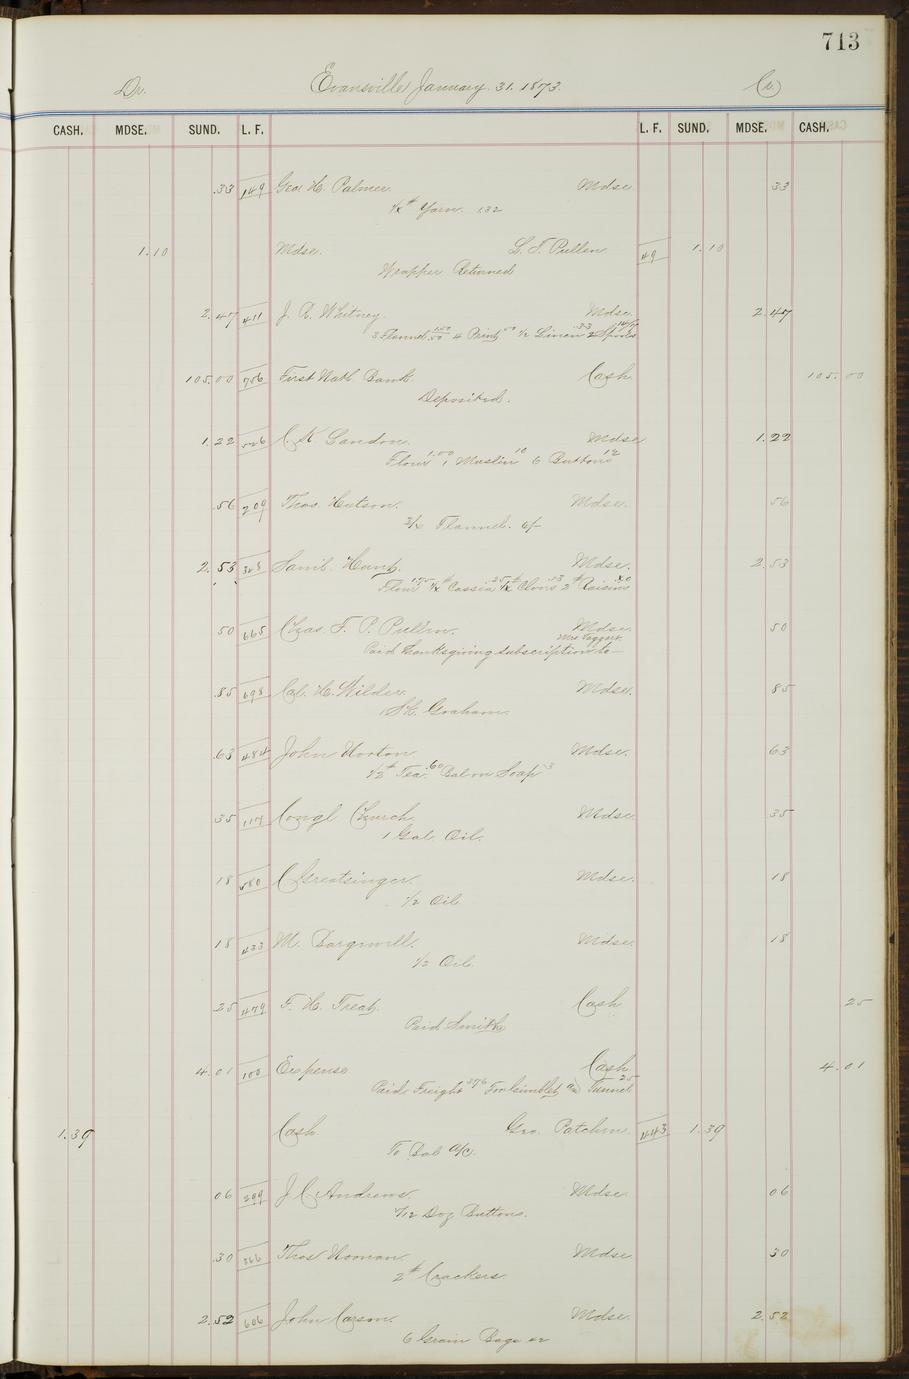 713
Dr. Evansville January. 31. 1873. Cr.
CASH. MDSE. SUND. L. F. L. F. SUND. MDSE. CASH.
.33 149 Geo. H. Palmer. Mdse. 33
¼# Yarn. 1.32
1.10 Mdse. L. T. Pullen 49 1.10
Wrapper Returned
2.47 411 J. R. Whitney. Mdse. 2.47
3 Flannel 4 Print ½ Linen 2 Spools
105.00 706 First Natl. Bank. Cash 105.00
Deposited.
1.22 C. K. Landon. Mdse 1.22
Flour 1.00 1 Muslin 10 6 Buttons 12
.56 209 Thos. Hutson. Mdse. 56
Flannel. 6/-
2.53 348 Saml. Hunt. Mdse. 2.53
Flour 1.75 ¼# Cassia 25 ¼# Cloves 13 2# Raisins 40
50 665 Chas. F. P. Pullen. Mdse. 50
Mrs Taggart
Paid Thanksgiving subscription to
.85 698 Cal. H. Wilder. Mdse. 85
1 Sk. Graham.
.63 484 John Horton. Mdse. 63
½# Tea. .60 Bal on Soap 3
35 117 Congl Church Mdse. 35
1 Gal. Oil.
18 580 C Greatsinger. Mdse. 18
½ Oil
18 433 M. Bargwell. Mdse. 18
½ Oil.
.25 479 F. H. Treat. Cash 25
Paid Smith
4.01 100 Expense Cash. 4.01
Paid Freight 376 For Gimblet and Funnel 25
1.39 Cash Geo. Patchin. 443 1.39
To Bal a/c.
06 299 J C Andrews. Mdse. 06
Doz Buttons.
.30 366 Thos Noonan Mdse. 30
2# Crackers.
2.52 606 John Carson. Mdse. 2.52
6 Grain Bags 42